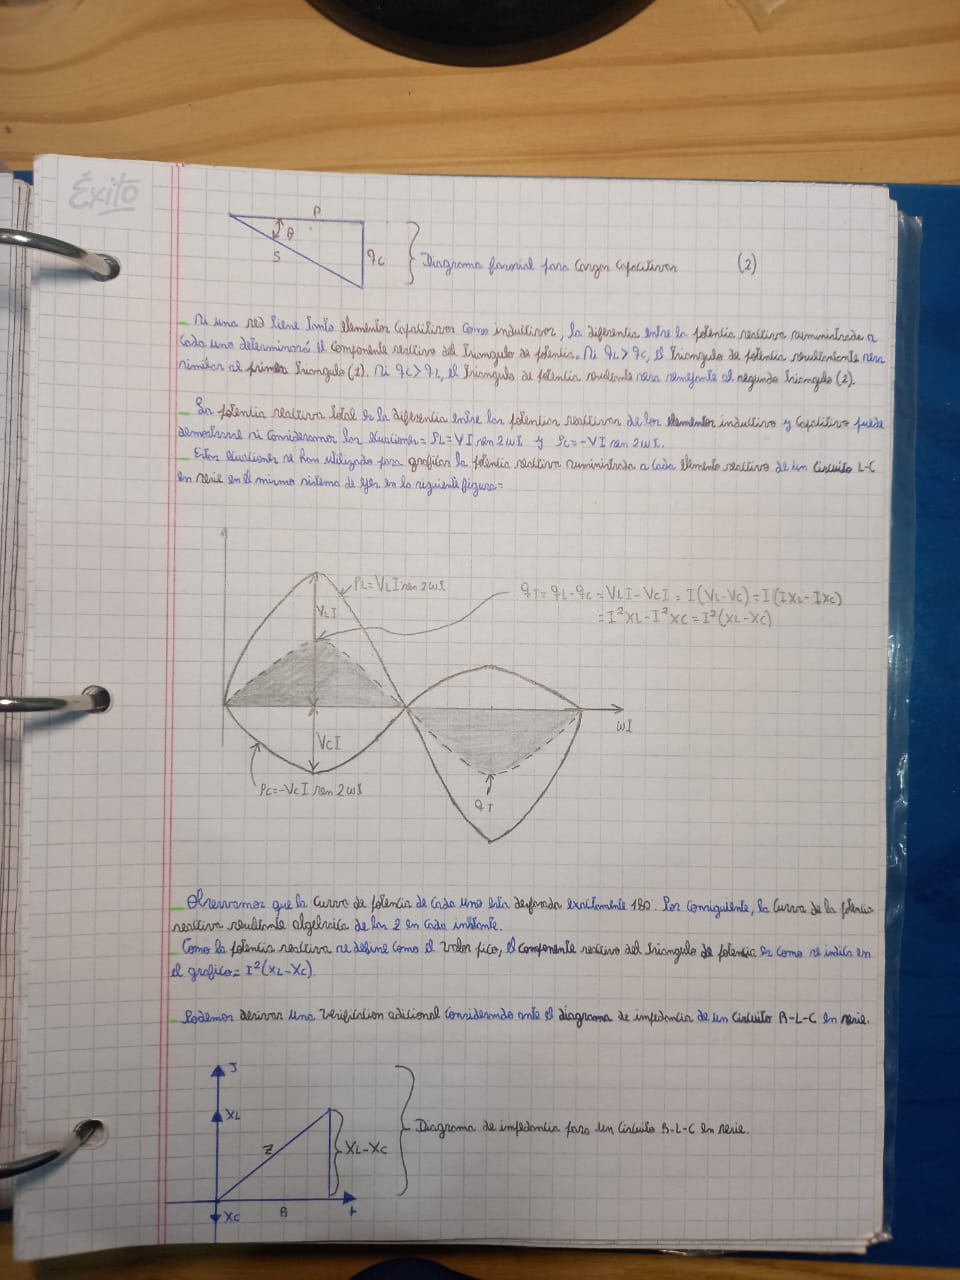 Éxito
P
θ
S
qc
Diagrama fasorial para cargas capacitivas (2)
Si una red tiene tanto elementos capacitivos como inductivos, la diferencia entre la potencia reactiva suministrada a
cada uno determinará el componente reactivo del triangulo de potencia. Si qL > qc, el triangulo de potencia resultante sera
similar al primer triangulo (1). Si qc > qL, el triangulo de potencia resultante sera semejante al segundo triangulo (2).
La potencia reactiva total es la diferencia entre las potencias reactivas de los elementos inductivo y capacitivo puede
demostrarse si consideramos las ecuaciones = PL = VI sen 2wt y Pc = -VI sen 2wt.
Estas ecuaciones se han utilizado para graficar la potencia reactiva suministrada a cada elemento reactivo de un circuito L-C
en serie en el mismo sistema de ejes en la siguiente figura =
PL = VL I sen 2wt
VL I
qT = qL - qc = VL I - Vc I = I (VL - Vc) = I (IXL - IXc)
= I²XL - I²XC = I²(XL - Xc)
wt
Vc I
Pc = -Vc I sen 2wt
qT
Observamos que la curva de potencia de cada uno esta desfasada exactamente 180°. Por consiguiente, la curva de la potencia
reactiva resultante algebraica de las 2 en cada instante.
Como la potencia reactiva se define como el valor pico, el componente reactivo del triangulo de potencia es como se indica en
el grafico = I²(XL - Xc).
Podemos derivar una verificación adicional considerando ante el diagrama de impedancia de un circuito R-L-C en serie.
J
XL
Z
XL - Xc
Diagrama de impedancia para un circuito R-L-C en serie.
R
+
Xc